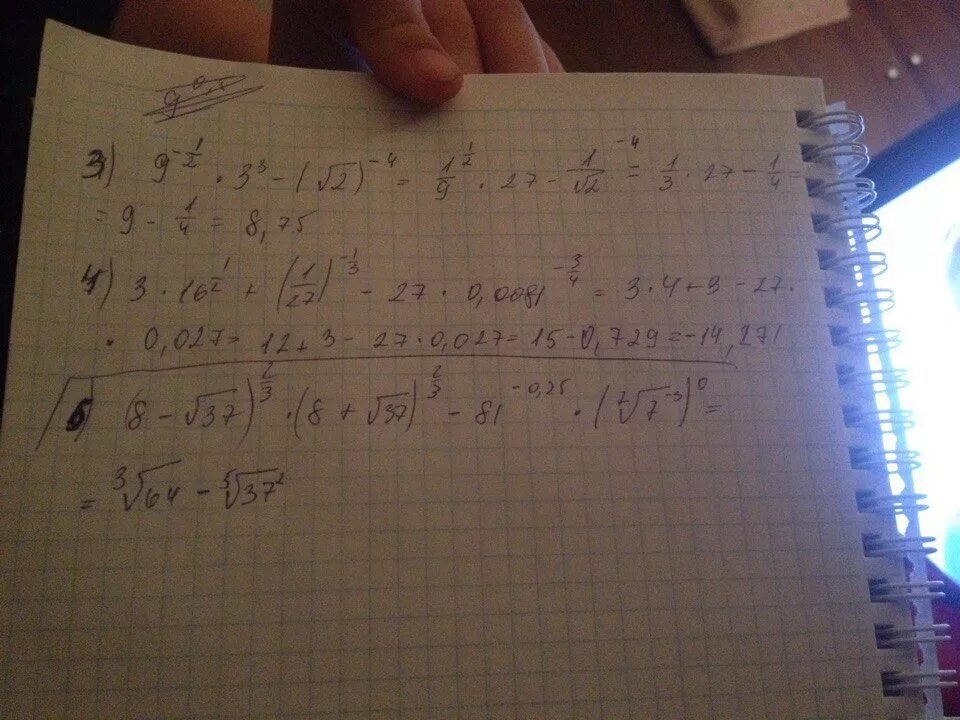 3) 9^{-1/2} · 3³ - (√2)^{-4} = 1/9^{1/2} · 27 - 1/√2^{-4} = 1/3 · 27 - 1/4 =
= 9 - 1/4 = 8,75
4) 3 · 16^{1/2} + (1/27)^{-1/3} - 27 · 0,0081^{-3/4} = 3·4+3-27·
· 0,027 = 12+3-27·0,027 = 15-0,729 = -14,271
5) (8-√37)^{2/3} · (8+√37)^{2/3} - 81^{-0,25} · (⁷√7^{-3})⁰ =
= ³√64 - ³√37²